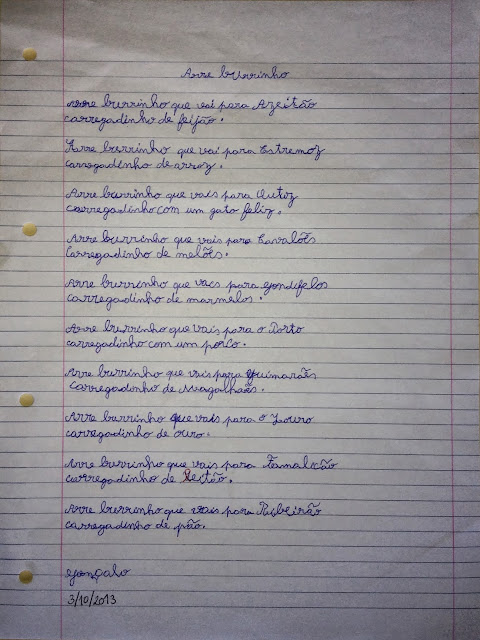 Arre burrinho
Arre burrinho que vai para Azeitão
carregadinho de feijão.
Arre burrinho que vai para Estremoz
carregadinho de arroz.
Arre burrinho que vais para Outiz
carregadinho com um gato feliz.
Arre burrinho que vais para Cavalões
Carregadinho de melões.
Arre burrinho que vais para gondifelos
carregadinho de marmelos.
Arre burrinho que vais para o Porto
carregadinho com um porco.
Arre burrinho que vais para Guimarães
carregadinho de Magalhães.
Arre burrinho que vais para o Louro
carregadinho de ouro.
Arre burrinho que vais para Famalicão
carregadinho de leitão.
Arre burrinho que vais para Ribeirão
carregadinho de pão.
gonçalo
3/10/2013